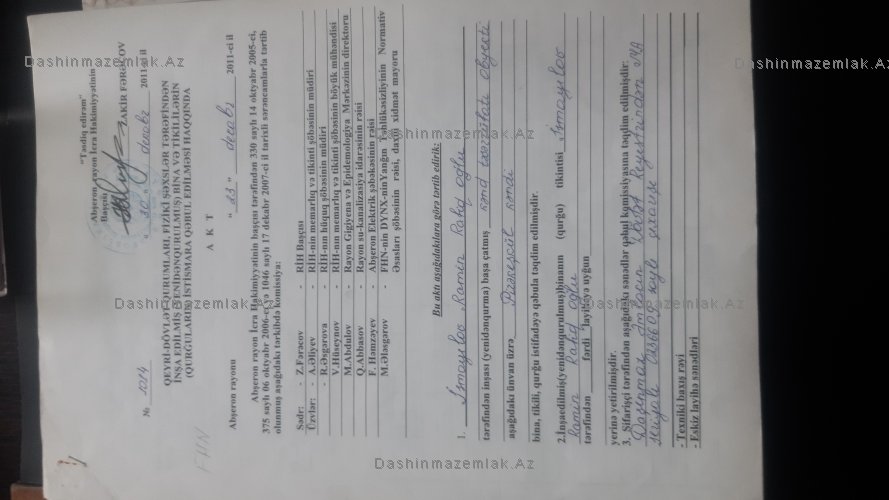 "Təsdiq edirəm"
Abşeron rayon İcra Hakimiyyətinin
Başçısı ZAKİR FƏRƏCOV
" 30 " dekabr 2011-ci il
№ 1014
QEYRİ-DÖVLƏT QURUMLARI, FİZİKİ ŞƏXSLƏR TƏRƏFİNDƏN
İNŞA EDİLMİŞ (YENİDƏNQURULMUŞ) BİNA VƏ TİKİLİLƏRİN
(QURĞULARIN) İSTİSMARA QƏBUL EDİLMƏSİ HAQQINDA
A K T
FHN
Abşeron rayonu " 23 " dekabr 2011-ci il
Abşeron rayon İcra Hakimiyyətinin başçısı tərəfindən 330 saylı 14 oktyabr 2005-ci,
375 saylı 06 oktyabr 2006-cı və 1046 saylı 17 dekabr 2007-ci il tarixli sərəncamlarla tərtib
olunmuş aşağıdakı tərkibdə komissiya:
Sədr: - Z.Fərəcov - RİH Başçısı
Üzvlər: - A.Əliyev - RİH-nin memarlıq və tikinti şöbəsinin müdiri
- R.Əsgərova - RİH-nın hüquq şöbəsinin müdiri
V.Hüseynov - RİH-nın memarlıq və tikinti şöbəsinin böyük mühəndisi
M.Abdulov - Rayon Gigiyena və Epidemologiya Mərkəzinin direktoru
Q.Abbasov - Rayon su-kanalizasiya idarəsinin rəisi
F. Həmzəyev - Abşeron Elektrik şəbəkəsinin rəisi
M.Ələsgərov - FHN-nin DYNX-ninYanğın Təhlükəsizliyinin Normativ
Əsasları şöbəsinin rəisi, daxili xidmət mayoru
Bu aktı aşağıdakılara görə tərtib edirik:
1. İsmayılov Ramin Rafiq oğlu
tərəfindən inşası (yenidənqurma) başa çatmış kənd təsərrüfatı obyekti
aşağıdakı ünvan üzrə Pirəkəşkül kəndi
bina, tikili, qurğu istifadəyə qəbula təqdim edilmişdir.
2.İnşaedilmiş(yenidənqurulmuş)binanın (qurğu) tikintisi İsmayılov
Ramin Rafiq oğlu
tərəfindən fərdi layihəyə uyğun
yerinə yetirilmişdir.
3. Sifarişçi tərəfindən aşağıdakı sənədlər qəbul komissiyasına təqdim edilmişdir:
Daşınmaz əmlakın Dövlət Reyestrindən MA
saylı çıxarış
- Texniki baxış rəyi
- Eskiz layihə sənədləri
Dashinmazemlak.Az
Dashinmazemlak.Az
Dashinmazemlak.Az
Dashinmazemlak.Az
Dashinmazemlak.Az
Dashinmazemlak.Az
Dashinmazemlak.Az